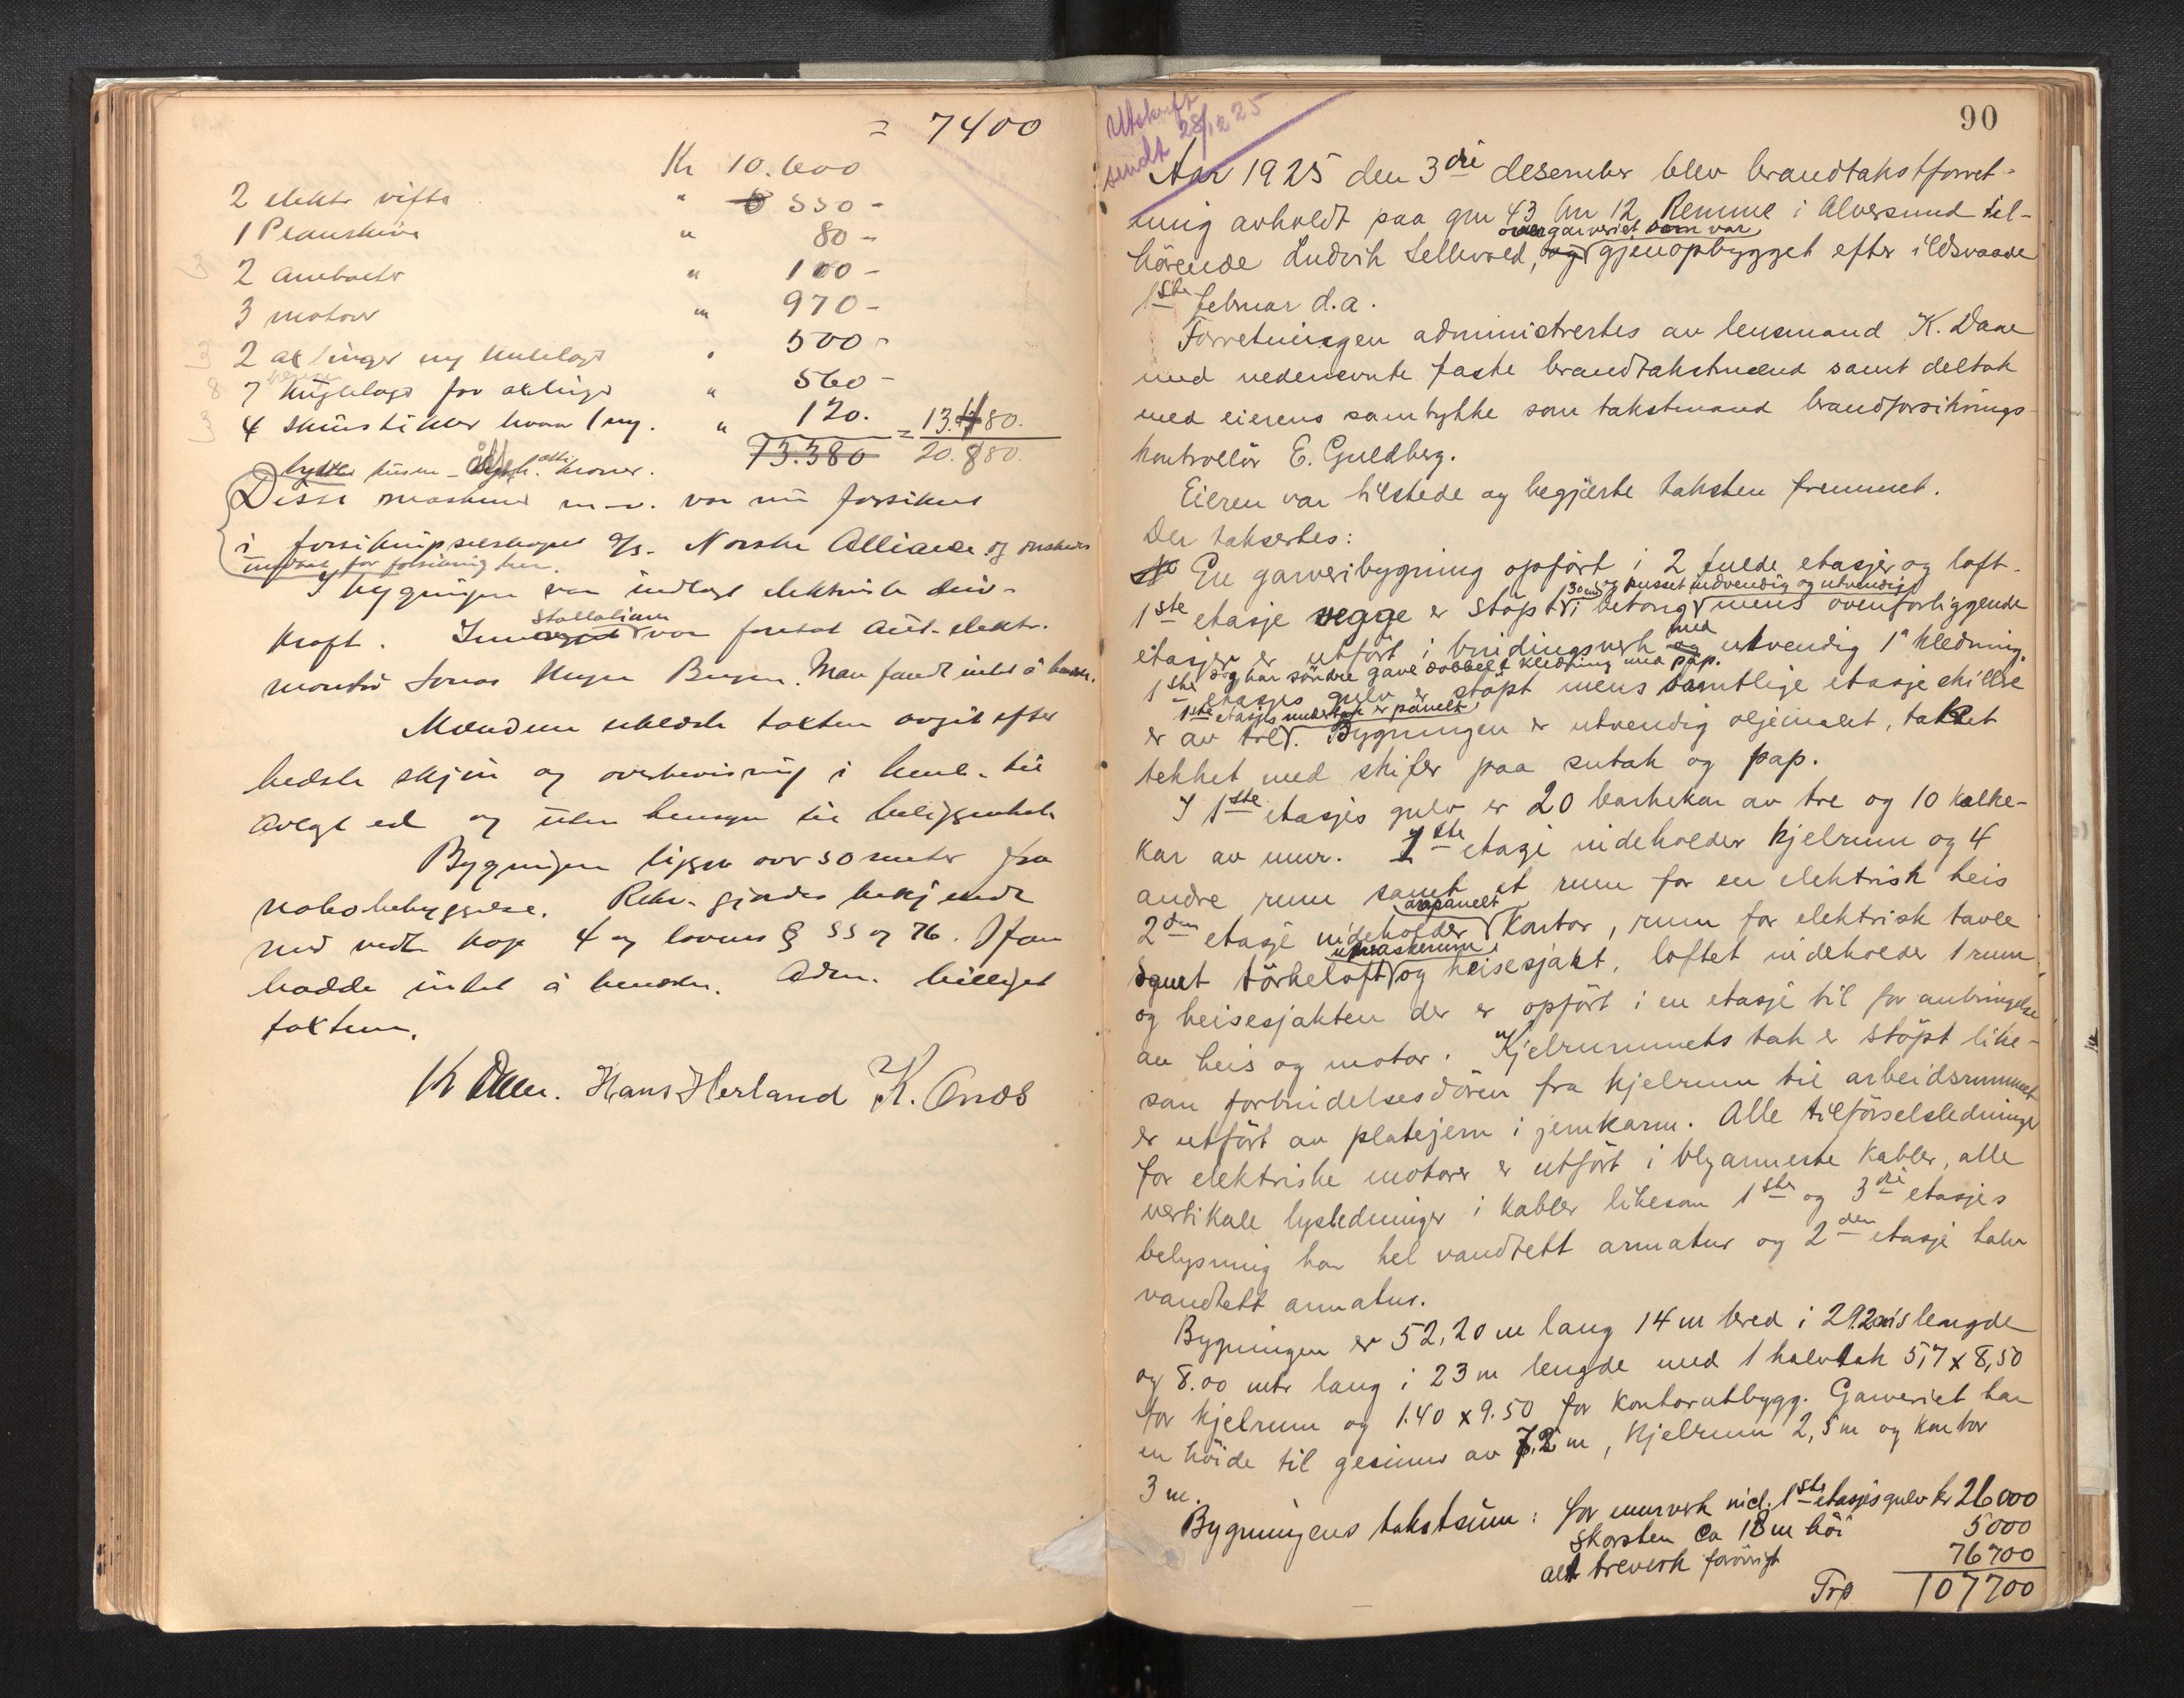 = 7400
Kr 10.600
2 elektr vifte " 550 -
1 " 80 -
2 " 100 -
3 motorer " 970 -
2 ny " 500 -
7 kuglelage for " 560 -
4 hvorav 1 ny. " 120. = 13.480.
13.380 20.880.
tusen åtti kroner.
Disse maskiner m.v. var nu forsikret
i forsikringsselskapet A/S. Norske Alliance og ønskedes
for forsikring her.
I bygningen var indlagt elektrisk driv-
stallationen
kraft. In var foretat aut. elektr.
montør Jonas Bergen. Man fandt intet å bemerke.
Mændene uttalte taksten avgit efter
bedste skjøn og overbevisning i henh. til
avlagt ed og uten hensyn til beliggenhet.
Bygningen ligger over 50 meter fra
nabobebyggelse. Rekv. gjordes bekjendt
med vedt. kap 4 og lovens § 55 og 76. Han
hadde intet å bemerke. Adm. billiget
taksten.
K Daae. Hans Herland K. Onæs
90
Utskrift
sendt 28/12 25
Aar 1925 den 3die desember blev brandtakstforret-
ning avholdt paa gnr 43 bnr 12 Remme i Alversund til-
over garveriet som var
hørende Ludvik Sellevold, og gjenopbygget efter ildsvaade
1ste februar d.a.
Forretningen administrertes av lensmand K. Daae
med nedennevnte faste brandtakstmænd samt deltok
med eierens samtykke som takstmand brandforsikrings-
kontrollør E. Guldberg.
Eieren var tilstede og begjærte taksten fremmet.
Der taksertes:
En garveribygning opført i 2 fulde etasjer og loft.
30 cm og pusset indvendig og utvendig
1ste etasje vegge er støpt i betong mens ovenforliggende
med
etasjer er utført i bindingsverk og utvendig 1" kledning.
og har søndre gavl dobbelt kledning med pap.
1ste etasjes gulv er støpt mens samtlige etasjeskiller
1ste etasjes undertak er panelt
er av tre. Bygningen er utvendig oljemalet, taket
tekket med skifer paa sutak og pap.
I 1ste etasjes gulv er 20 barkekar av tre og 10 kalke-
kar av mur. 1ste etage indeholder kjelrum og 4
andre rum samt et rum for en elektrisk heis
avpanelt
2den etage indeholder kontor, rum for elektrisk tavle
maskinrum
samt tørkeloft og heisesjakt, loftet indeholder 1 rum
og heisesjakten der er opført i en etasje til for anbringelse
av heis og motor. Kjelrummets tak er støpt like-
som forbindelsesdøren fra kjelrum til arbeidsrummet
er utført av platejern i jernkarm. Alle tilførselsledninger
for elektriske motorer er utført i blyarmerte kabler, alle
vertikale lysledninger i kabler likesom 1ste og 3die etasjes
belysning har hel vandtett armatur og 2den etasje halv
vandtett armatur.
Bygningen er 52,20 m lang 14 m bred i 29.20 m's lengde
og 8.00 mtr lang i 23 m lengde med 1 halvtak 5,7 x 8,50
for kjelrum og 1.40 x 9.50 for kontorutbygg. Garveriet har
en høide til gesims av 7.2 m, kjelrum 2,5 m og kontor
3 m.
Bygningens takstsum: for murverk incl. 1ste etasjes gulv kr 26000
Skorsten ca 18 m høi 5000
alt treverk forøvrigt 76700
Trp 107700